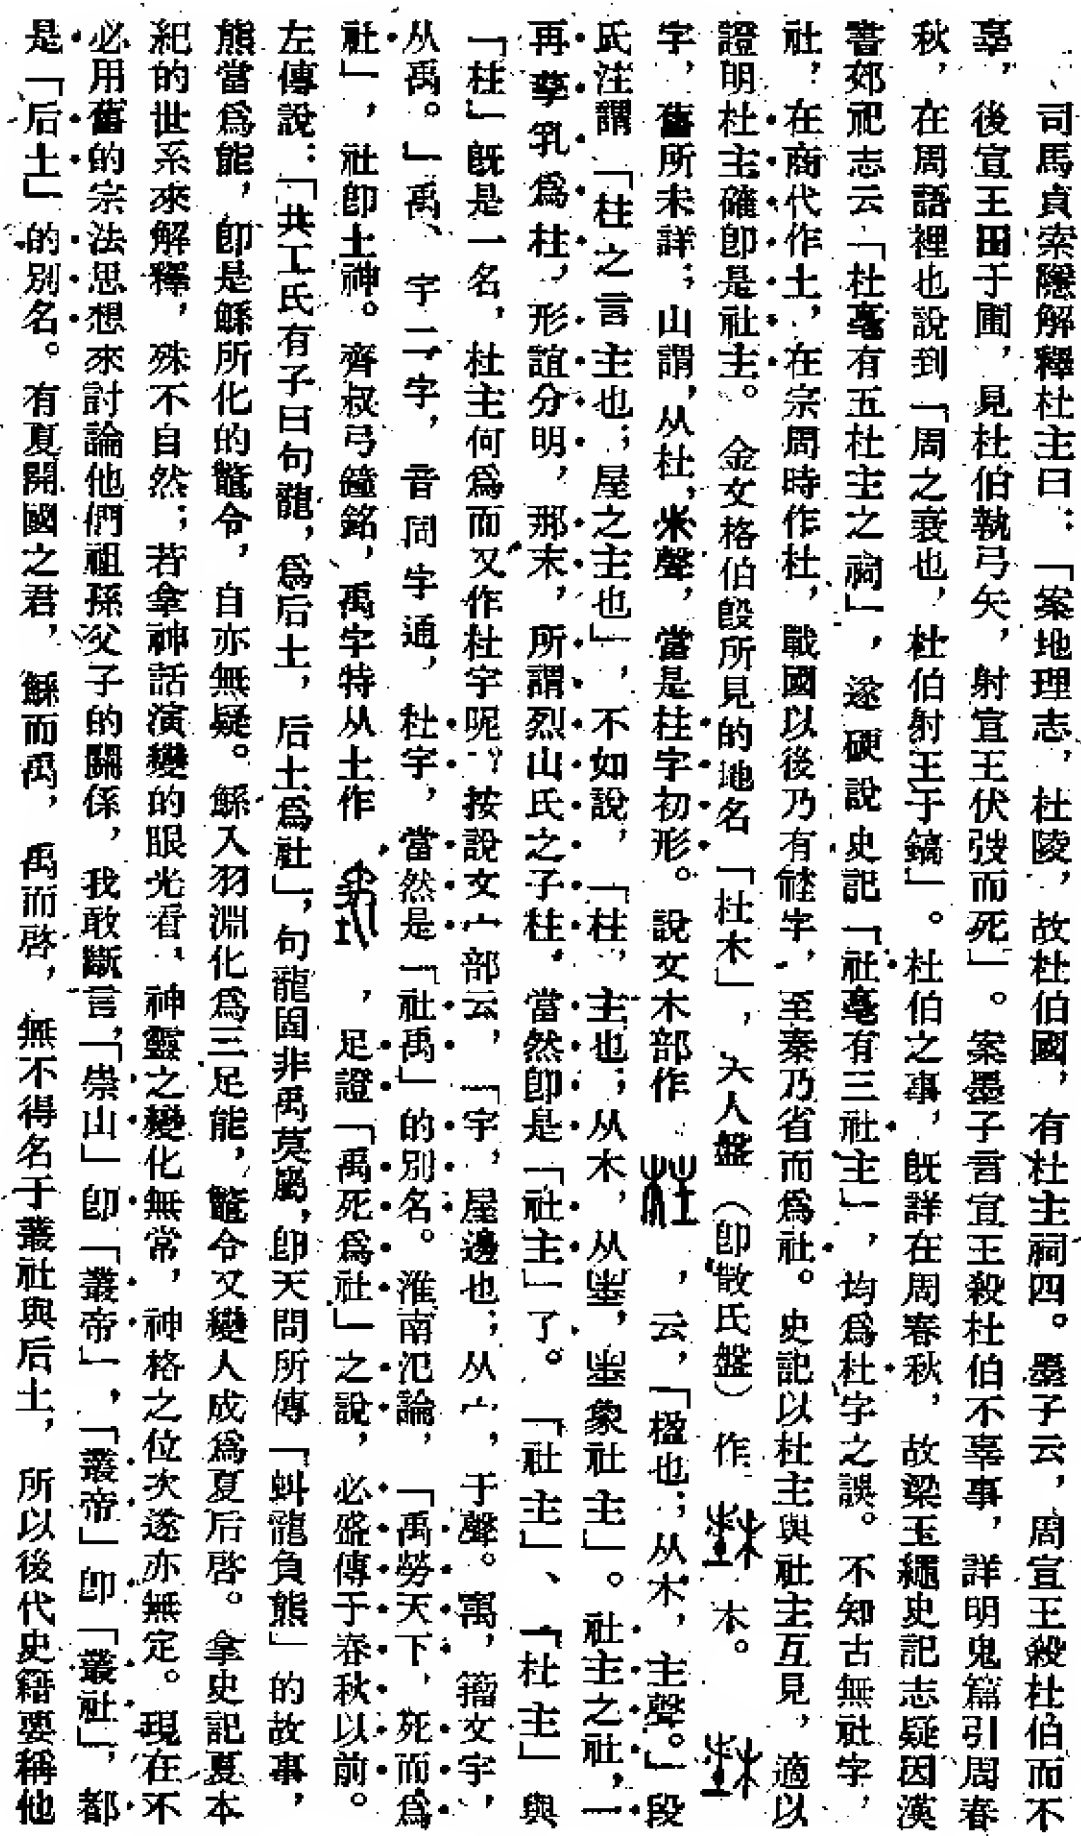 司馬貞索隱解釋杜主曰：「案地理志，杜陵，故杜伯國，有杜主祠四。墨子云，周宣王殺杜伯而不
辜，後宣王田于圃，見杜伯執弓矢，射宣王伏弢而死」。案墨子言宣王殺杜伯不辜事，詳明鬼篇引周春
秋，在周語裡也說到「周之衰也，杜伯射王于鎬」。杜伯之事，既詳在周春秋，故梁玉繩史記志疑因漢
書郊祀志云「杜亳有五杜主之祠」，遂硬說史記「社亳有三社主」，均為杜字之誤。不知古無社字，
社，在商代作土，在宗周時作杜，戰國以後乃有𥙭字，至秦乃省而為社。史記以杜主與社主互見，適以
證明杜主確即是社主。金文格伯𣪘所見的地名「杜木」，大人盤（即散氏盤）作 木。
字，舊所未詳；山謂，从杜，木聲，當是柱字初形。說文木部作 ，云，「楹也；从木，主聲。」段
氏注謂「柱之言主也；屋之主也」，不如說，「柱，主也；从木，从坒，坒象社主」。社主之社，一
再孳乳為柱，形誼分明，那末，所謂烈山氏之子柱，當然即是「社主」了。「社主」、「杜主」與
「柱」既是一名，杜主何為而又作杜宇呢？按說文宀部云，「宇，屋邊也；从宀，于聲。㝢，籀文宇，
从禹。」禹、宇二字，音同字通，杜宇，當然是「社禹」的別名。淮南氾論，「禹勞天下，死而為
社」，社即土神。齊叔弓鐘銘，禹字特从土作 ，足證「禹死為社」之說，必盛傳于春秋以前。
左傳說：「共工氏有子曰句龍，為后土，后土為社」，句龍固非禹莫屬，即天問所傳「虯龍負熊」的故事，
熊當為能，即是鯀所化的鼈令，自亦無疑。鯀入羽淵化為三足能，鼈令又變人成為夏后啓。拿史記夏本
紀的世系來解釋，殊不自然；若拿神話演變的眼光看，神靈之變化無常，神格之位次遂亦無定。現在不
必用舊的宗法思想來討論他們祖孫父子的關係，我敢斷言，「崇山」即「叢帝」，「叢帝」即「叢社」，都
是「后土」的別名。有夏開國之君，鯀而禹，禹而啓，無不得名于叢社與后土，所以後代史籍要稱他